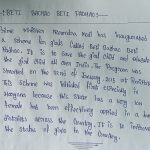 BETI BACHAO BETI PADHAO
Prime Minister Narendra Modi has inaugurated
a scheme for girls called Beti Bachao Beti
Padhao. It is to save the girl child and educate
the girl child all over India. The Program was
launched on the 22nd of January, 2015 at Panipat
This scheme was initiated first especially in
Haryana because this state has a very low
female
but been effectively applied in a hundred
districts across the Country. It is to improve
the status of girls in the Country.